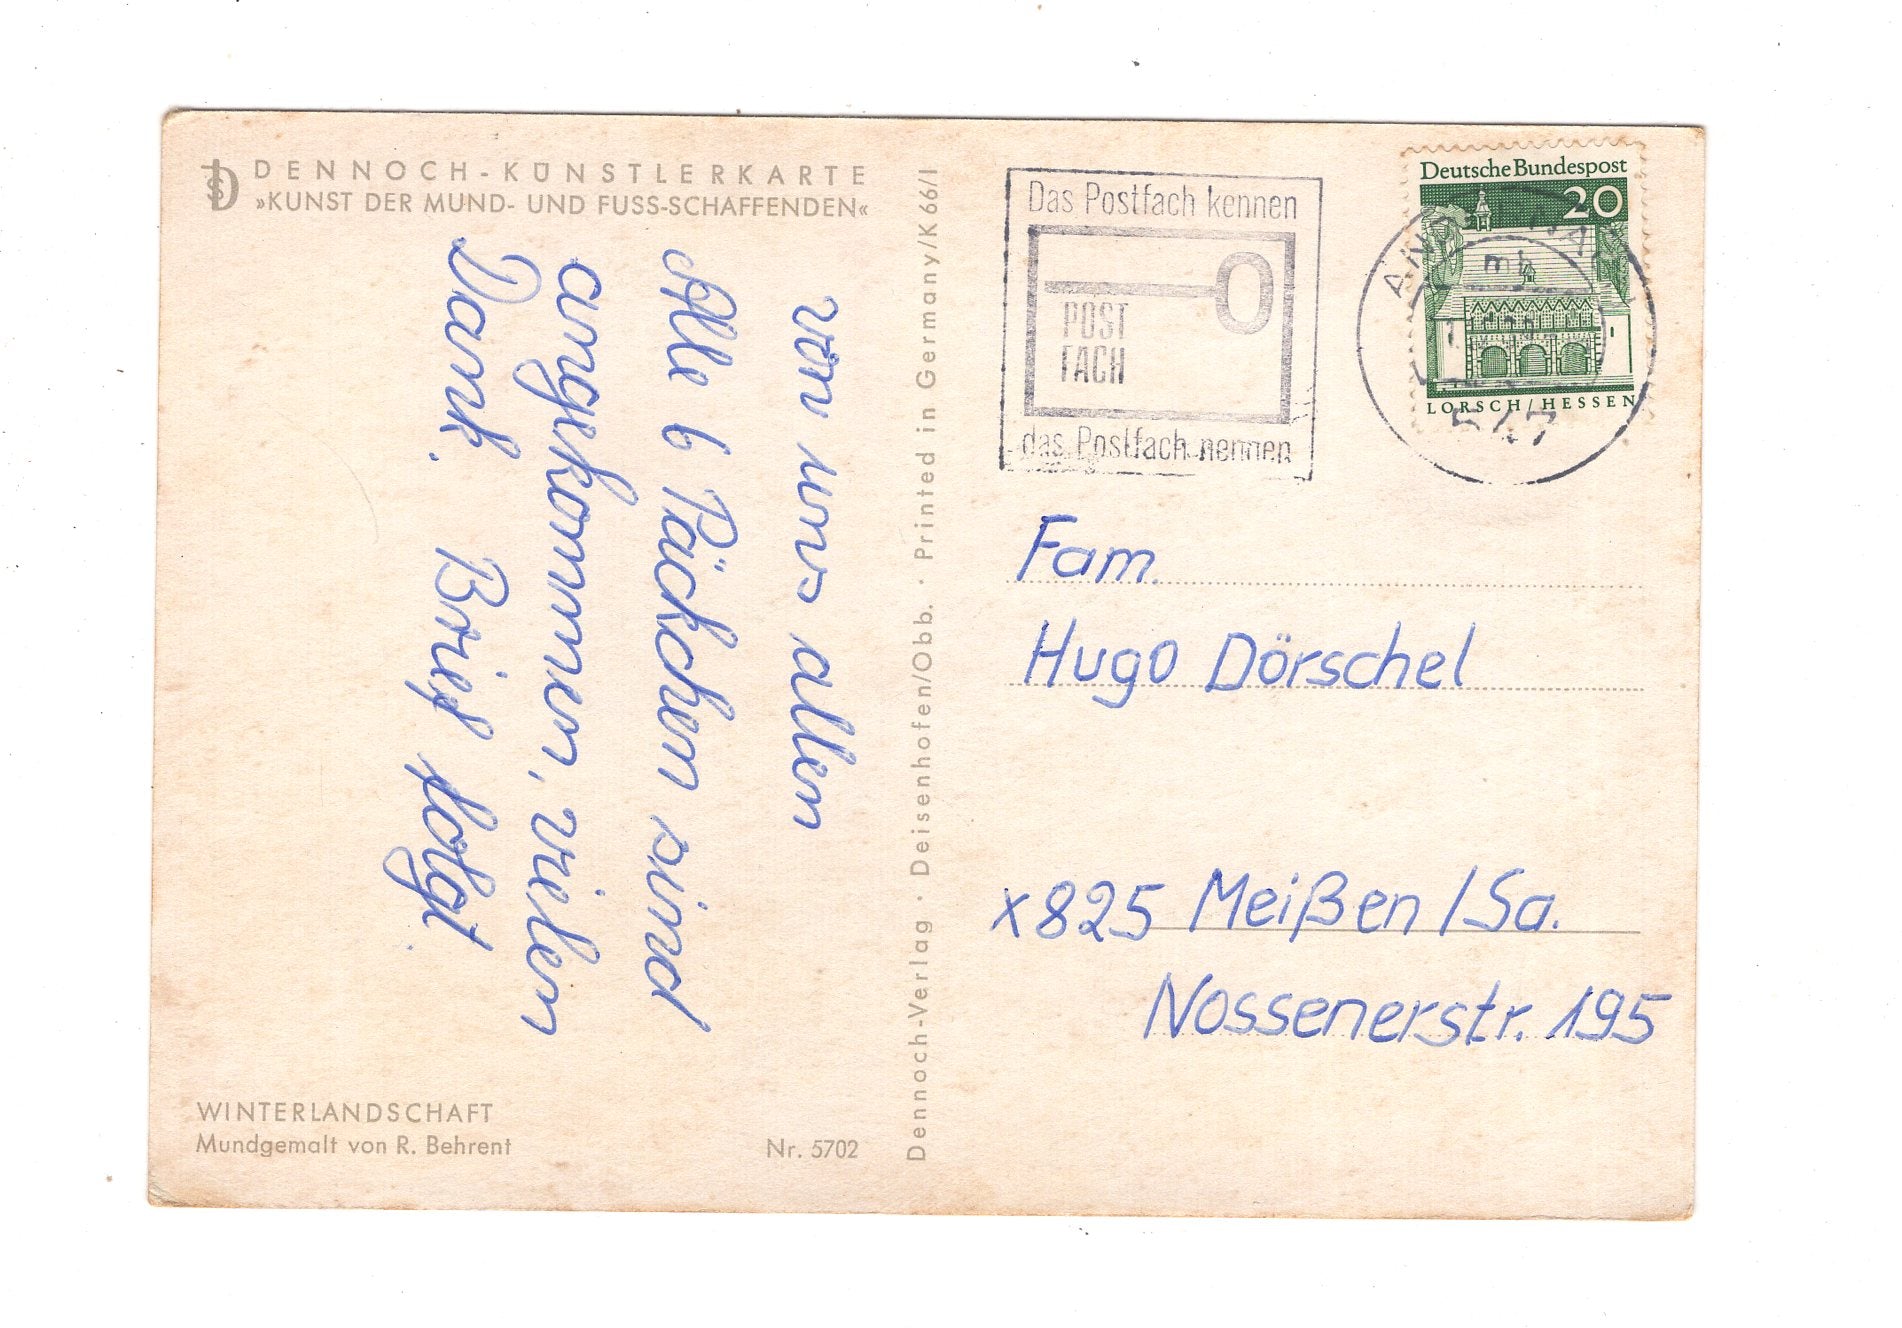 DENNOCH-KÜNSTLERKARTE
»KUNST DER MUND- UND FUSS-SCHAFFENDEN«
von uns allen
Alle 6 Päckchen sind
angekommen, vielen
Dank. Brief folgt.
WINTERLANDSCHAFT
Mundgemalt von R. Behrent
Nr. 5702
Dennoch-Verlag · Deisenhofen/Obb. · Printed in Germany/K 66/1
Das Postfach kennen
POST
FACH
das Postfach nennen
Deutsche Bundespost
20
LORSCH/HESSEN
mb
547
Fam.
Hugo Dörschel
x825 Meißen /Sa.
Nossenerstr. 195